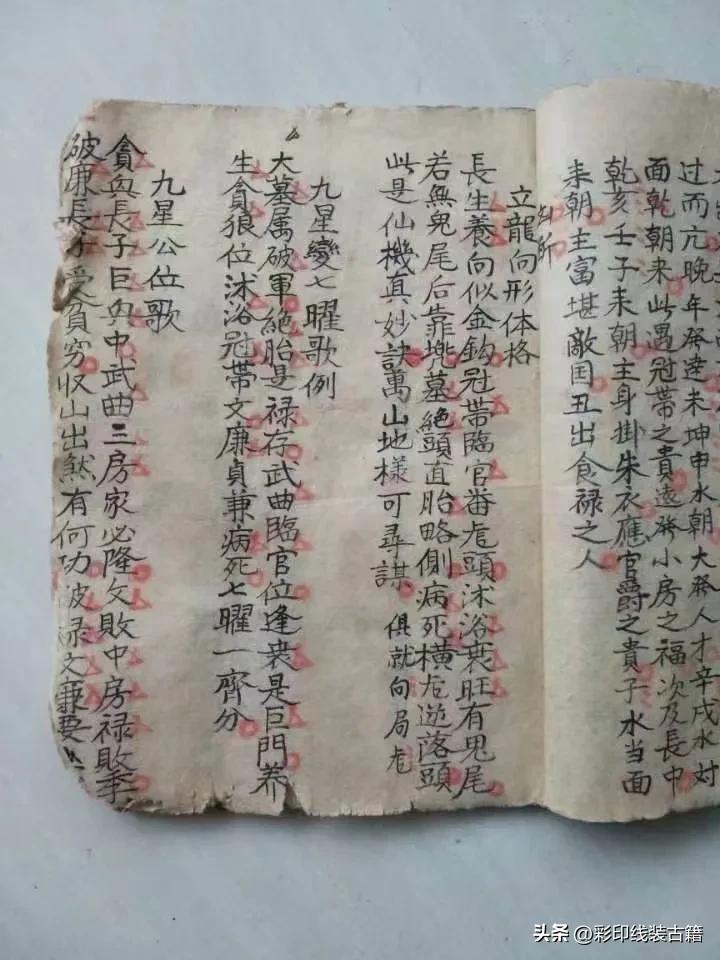 过而亢晚年癸達未坤申水朝大發人才辛戌水对
面乾朝来此遇冠帶之貴遠發小房之福次及長中
乾亥壬子耒朝主身掛朱衣應官爵之貴子水当面
耒朝主富堪敵囯丑出食禄之人
立龍向形体格
長生養向似金鈎冠帶臨官畨龙頭沭浴衰旺有鬼尾
若無鬼尾后靠垗墓絕頭直胎略側病死橫龙逆落頭
此是仙機真妙訣萬山地樣可尋謀 俱就向局龙
九星變七曜歌例
大墓属破軍絕胎是禄存武曲臨官位逢衰是巨門养
生貪狼位沭浴冠帶文廉貞兼病死七曜一齊分
九星公位歌
貪與長子巨與中武曲三房家必隆文敗中房禄敗季
破廉長子受負穷収山出煞有何功破禄文兼要
头条@彩印线装古籍